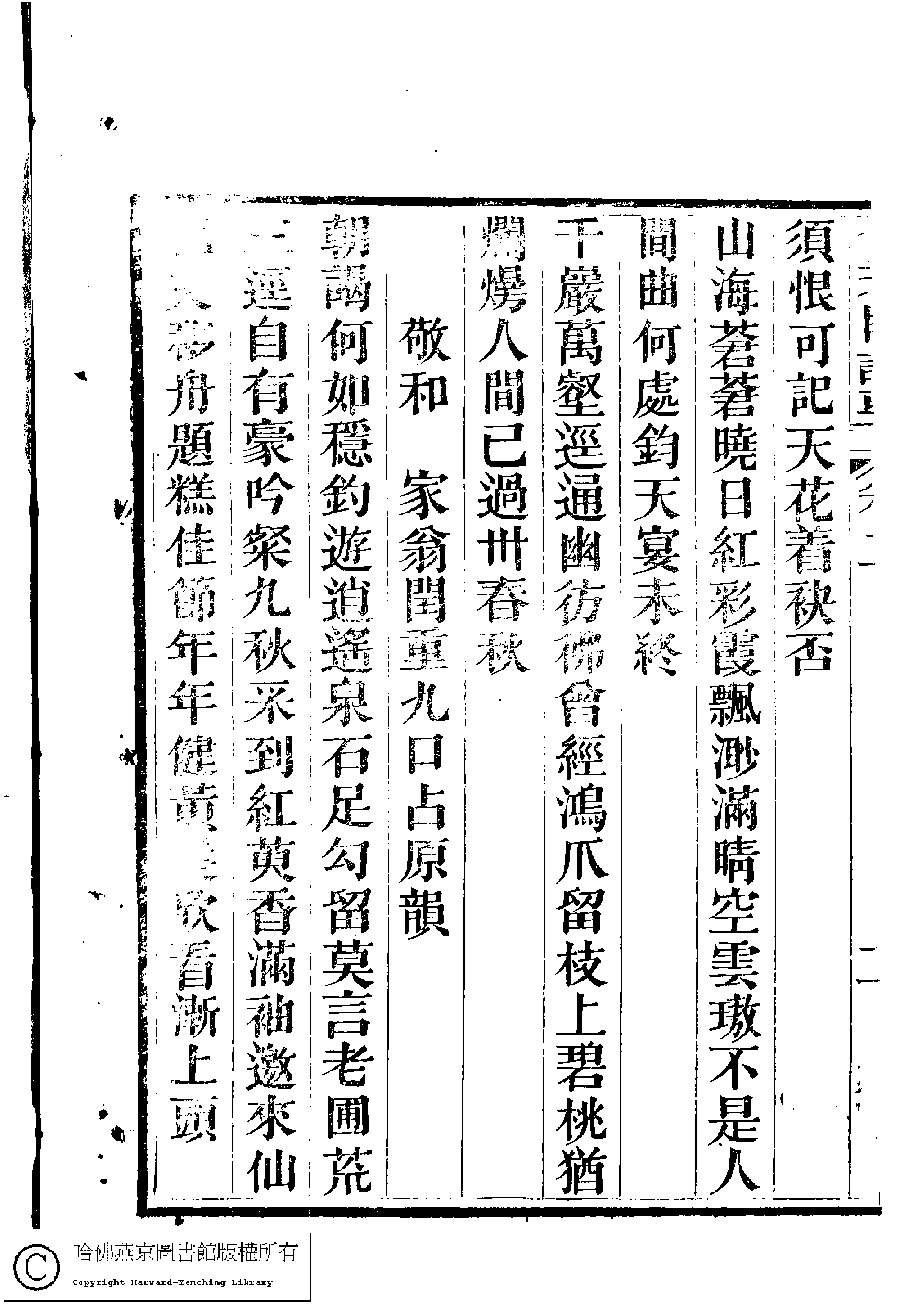 須恨可記天花着袂否
山海蒼蒼曉日紅彩霞飄渺滿晴空雲璈不是人
間曲何處鈞天宴未終
千巖萬壑逕通幽彷彿曾經鴻爪留枝上碧桃猶
爛熳人間已過卅春秋
敬和 家翁閏重九口占原韻
朝謁何如穩釣遊逍遙泉石足勾留莫言老圃荒
三逕自有豪吟粲九秋采到紅萸香滿袖邀來仙
舟題糕佳節年年健黃欣看漸上頭
二
哈佛燕京圖書館版權所有
Copyright Harvard-Yenching Library